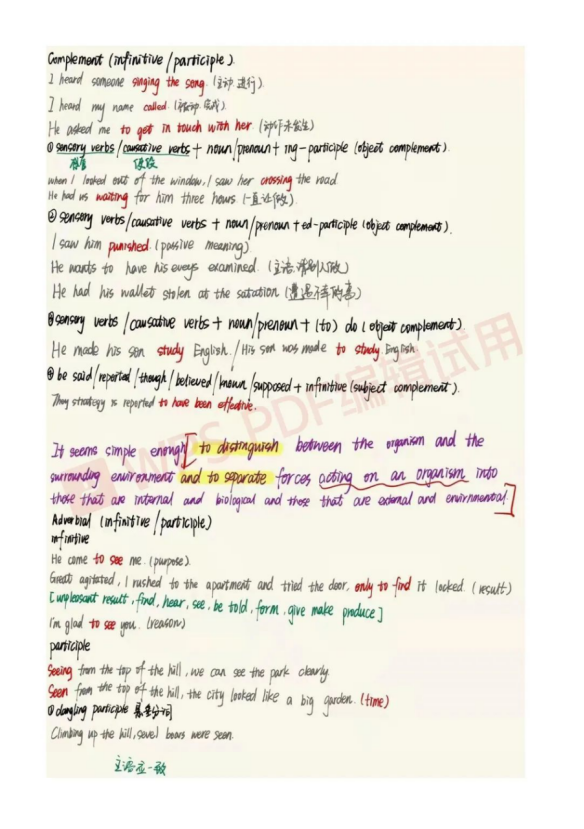 Complement (infinitive/participle).
I heard someone singing the song. (主动进行)
I heard my name called. (被动,完成)
He asked me to get in touch with her. (动作未发生)
① sensory verbs/causative verbs + noun/pronoun + ing-participle (object complement).
感官 使役
when I looked out of the window, I saw her crossing the road.
He had us waiting for him three hours (一直让做)
② sensory verbs/causative verbs + noun/prenoun + ed-participle (object complement).
I saw him punished. (passive meaning)
He wants to have his eveys examined. (主语请别人做)
He had his wallet stolen at the satation (遭遇)
③ sensory verbs/causative verbs + noun/prenoun + (to) do (object complement)
He made his son study English. / His son was made to study English
④ be said/reported/though/believed/known/supposed + infinitive (subject complement).
They strategy is reported to have been effective.
It seems simple enough [to distinguish between the organism and the
surrounding environment and to separate forces acting on an organism into
those that are internal and biological and those that are external and envirnmental]
Adverbial (infinitive/participle)
infinitive
He came to see me. (purpose).
Great agitated, I rushed to the apartment and tried the door, only to find it locked. (result)
[unpleasant result, find, hear, see, be told, form, give make produce]
I'm glad to see you. (reason)
participle
Seeing from the top of the hill, we can see the park clearly.
Seen from the top of the hill, the city looked like a big garden. (time)
① dangling participle 悬垂分词
Climbing up the hill, sevel bears were seen.
主语应一致
WPS PDF编辑试用